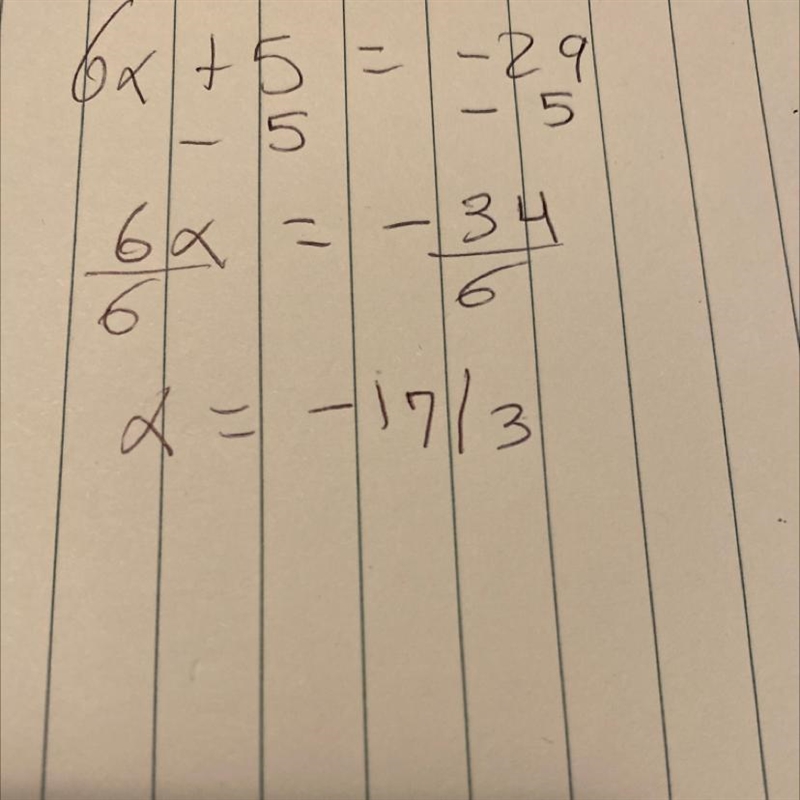 6x + 5 = -29
- 5 - 5
6x = -34
6 6
x = -17/3